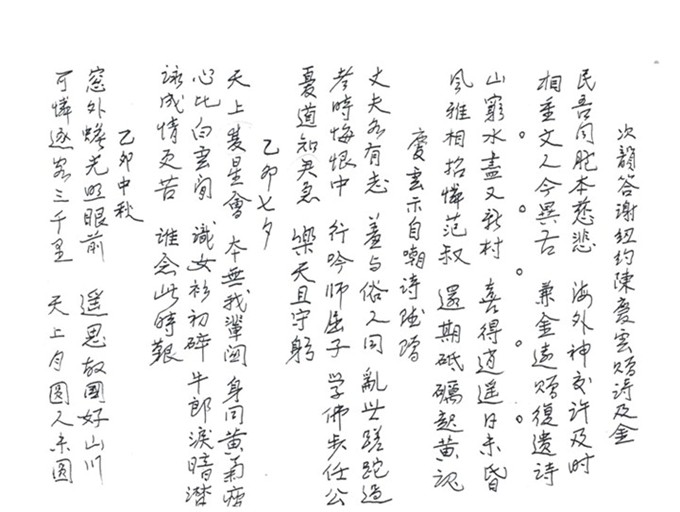 次韻答謝紐約陳慶雲贈诗及金
民吾同胞本慈悲 海外神交许及时
相重文人今異古 兼金遠贈復遺诗
山窮水盡又新村 喜得逍遥日未昏
風雅相招憐范叔 還期砥礪起黄魂
慶雲示自嘲诗
丈夫各有志 羞与俗人同 亂世蹉跎過
老時悔恨中 行吟师屈子 学佛步任公
憂道知君急 樂天且守躬
乙卯七夕
天上雙星會 本無我輩関 身同黄菊瘦
心比白雲閒 識女衫初碎 牛郎淚暗潸
詠成情更苦 谁念此時艱
乙卯中秋
窓外蟾光照眼前 遥思故國好山川
可憐逐客三千里 天上月圆人未圆